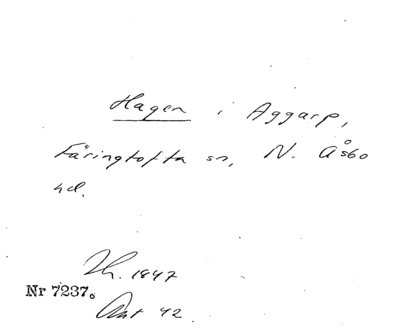 Hagen i Aggarp,
Färingtofta sn, N. Åsbo
hd.
1847
Nr 7237.
42